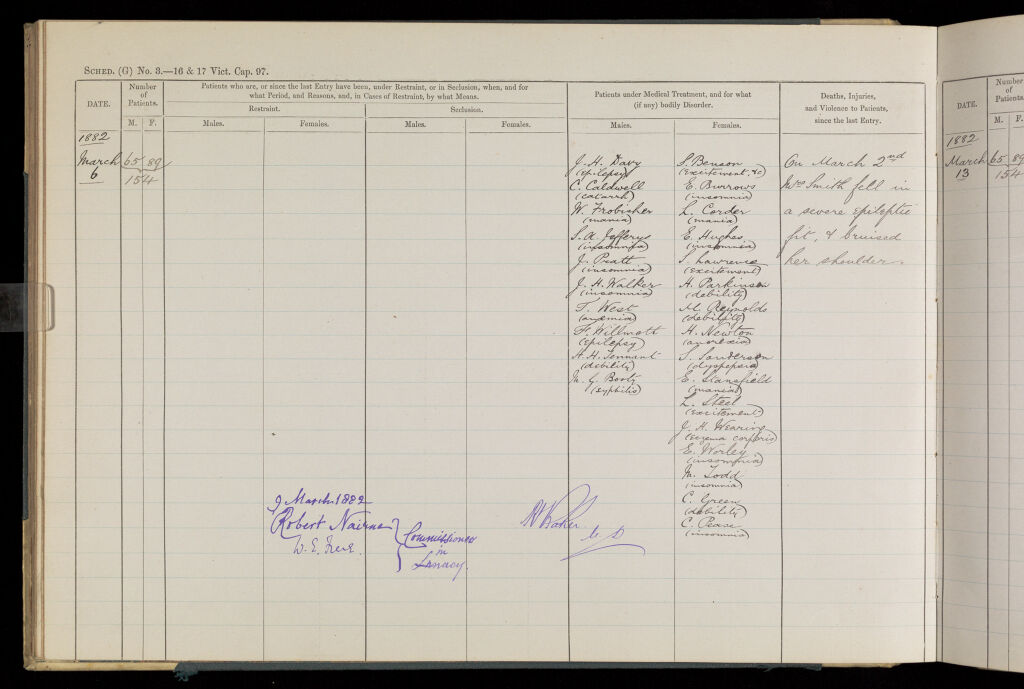 SCHED. (G) No. 3.—16 & 17 Vict. Cap. 97.
DATE.
Number of Patients.
M. F.
Patients who are, or since the last Entry have been, under Restraint, or in Seclusion, when, and for
what Period, and Reasons, and, in Cases of Restraint, by what Means.
Restraint.
Seclusion.
Males.
Females.
Males.
Females.
Patients under Medical Treatment, and for what
(if any) bodily Disorder.
Males.
Females.
Deaths, Injuries,
and Violence to Patients,
since the last Entry.
1882
March 6
65 89
154
J. H. Davy
(epilepsy)
C. Caldwell
(catarrh)
W. Frobisher
(mania)
S. A. Jefferys
(insomnia)
J. Pratt
(insomnia)
J. H. Walker
(insomnia)
T. West
(anæmia)
F. Willmott
(epilepsy)
A. H. Tennant
(debility)
M. G. Booty
(syphilis)
S. Benson
(excitement, &c)
E. Burrows
(insomnia)
L. Corder
(mania)
E. Hughes
(insomnia)
S. Lawrence
(excitement)
H. Parkinson
(debility)
M. Reynolds
(debility)
H. Newton
(anorexia)
S. Sanderson
(dyspepsia)
E. Stansfield
(mania)
L. Steel
(excitement)
J. H. Wearing
(eczema corporis)
E. Worley
(insomnia)
M. Todd
(insomnia)
C. Green
(debility)
C. Pease
(insomnia)
On March 2nd
Mrs Smith fell in
a severe epileptic
fit, & bruised
her shoulder.
9 March 1882
Robert Nairne
W. E. Frere.
Commissioners
in
Lunacy.
R Baker
M D
DATE.
Number of Patients.
M. F.
1882
March 13
65 89
154